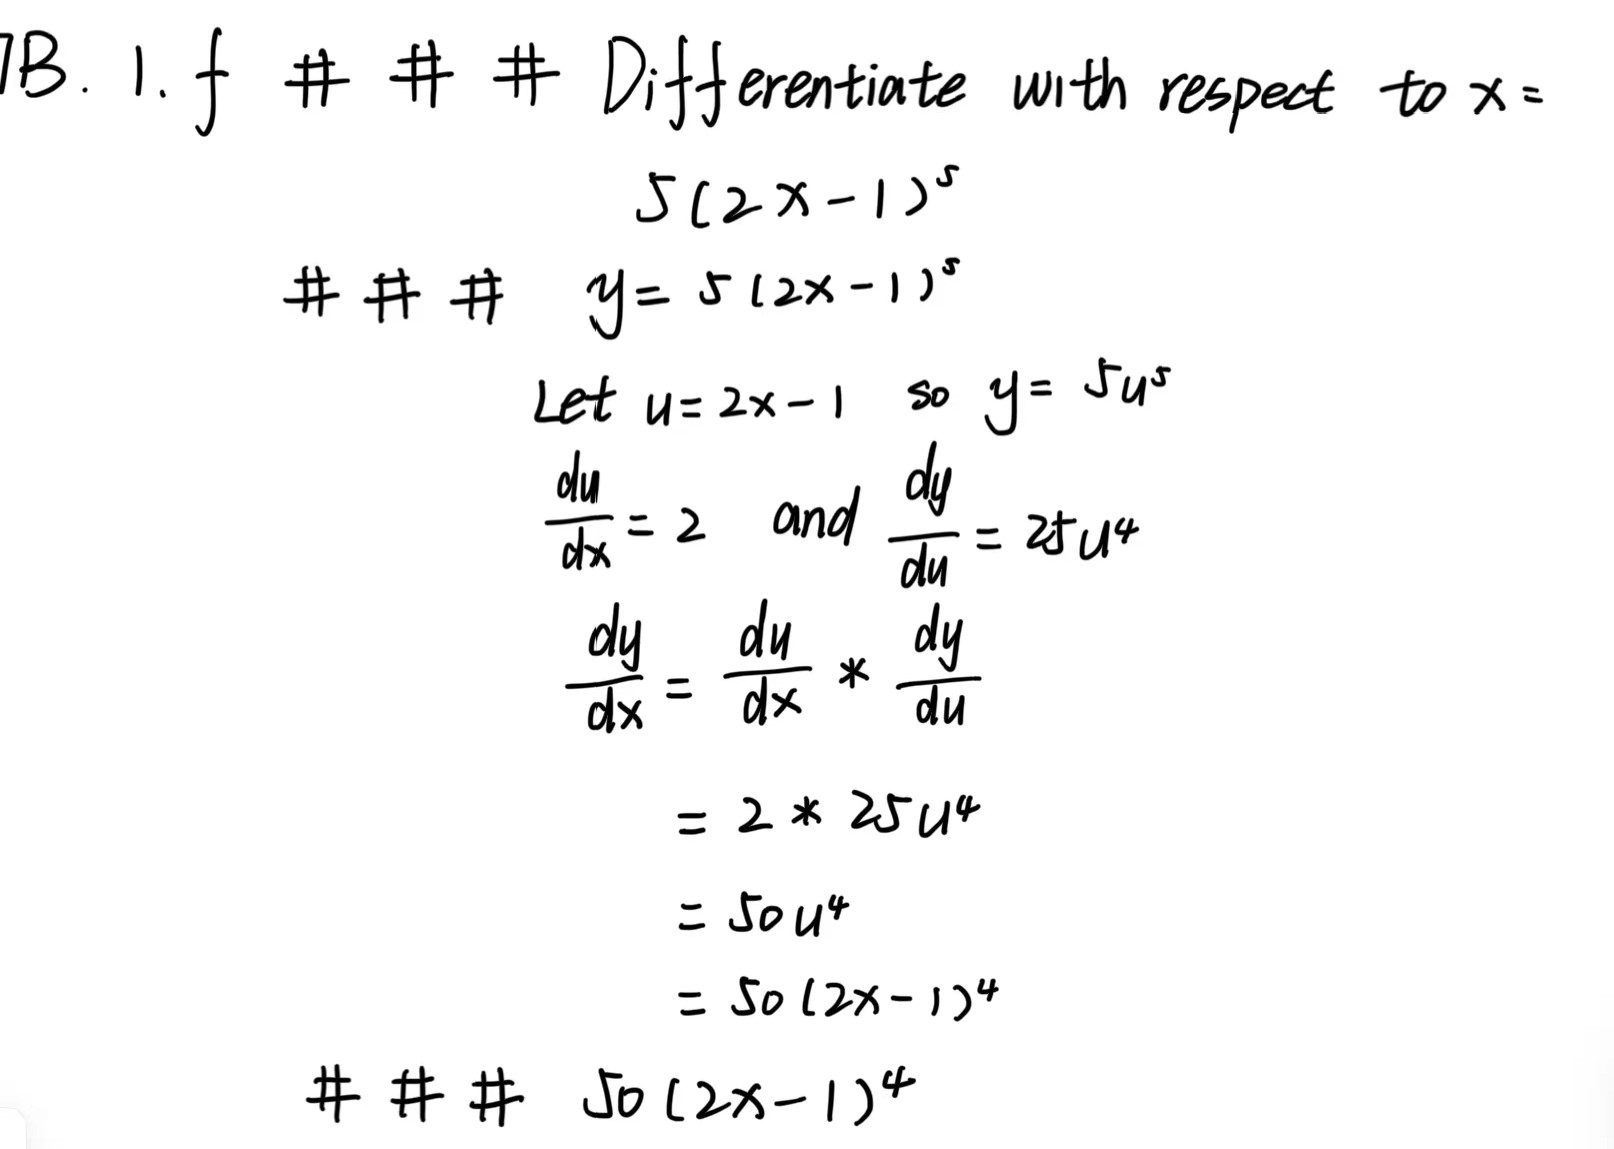 7B. 1. f # # # Differentiate with respect to x =
5(2x-1)⁵
# # # y = 5(2x-1)⁵
Let u = 2x-1 so y = 5u⁵
du/dx = 2 and dy/du = 25u⁴
dy/dx = du/dx * dy/du
= 2 * 25u⁴
= 50u⁴
= 50(2x-1)⁴
# # # 50(2x-1)⁴